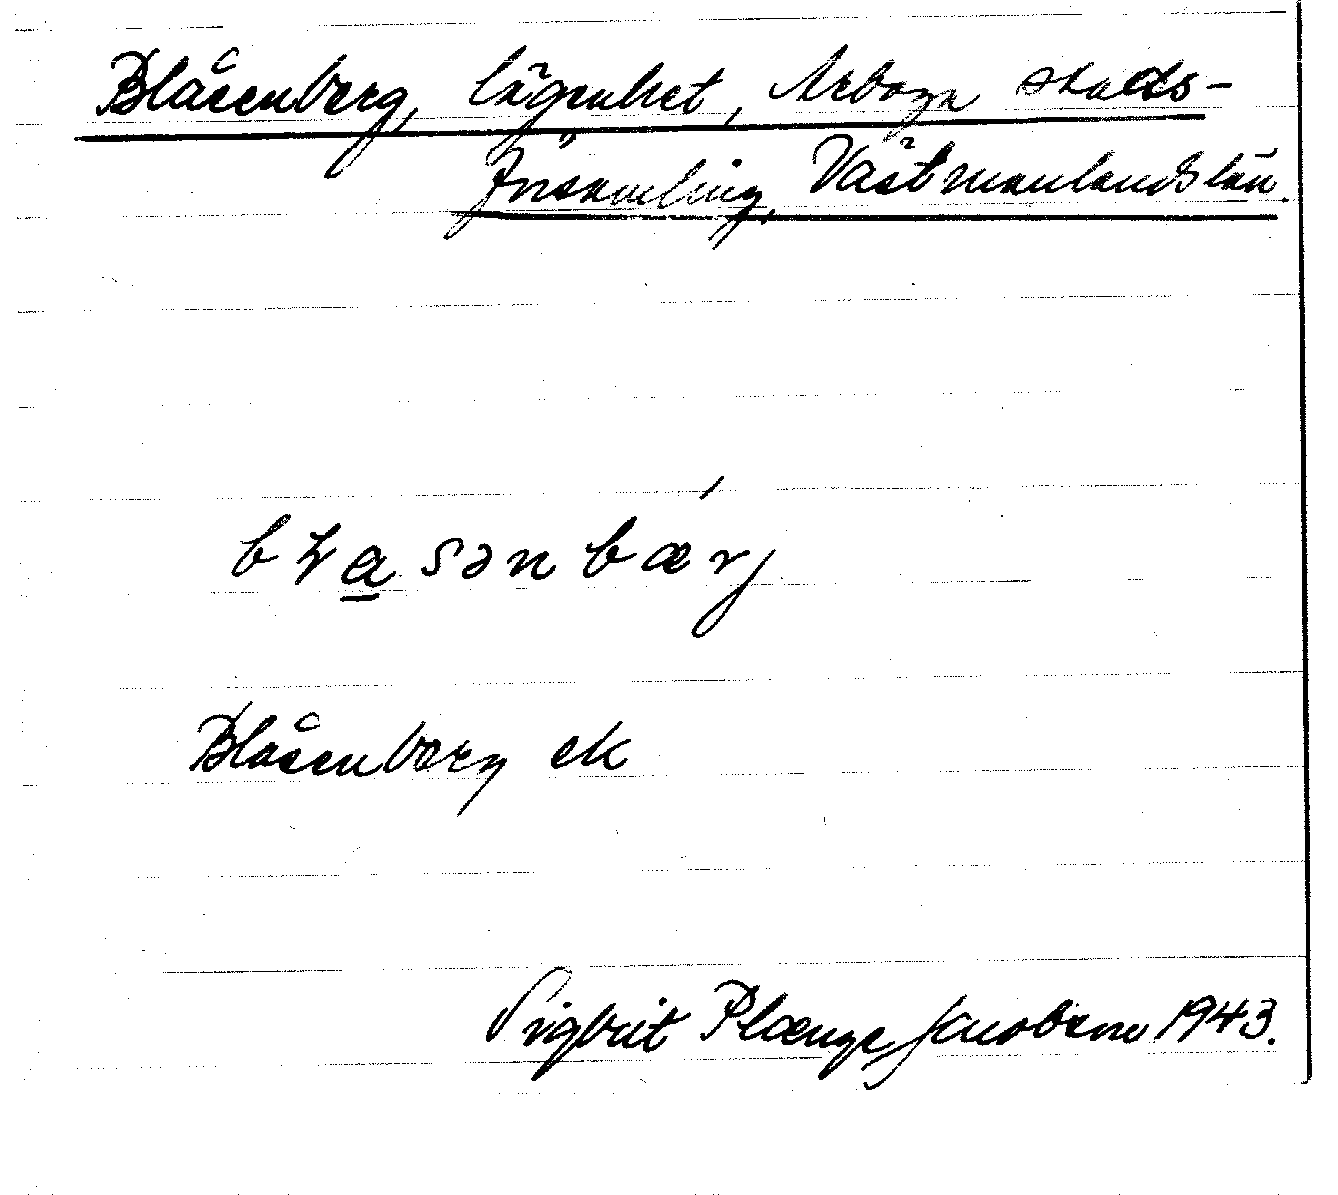 Blåsenberg, lägenhet, Arboga stads-
församling, Västmanlands län.
bɫasənbærj
Blåsenberg ek
Sigbrit Plænge Jacobson 1943.